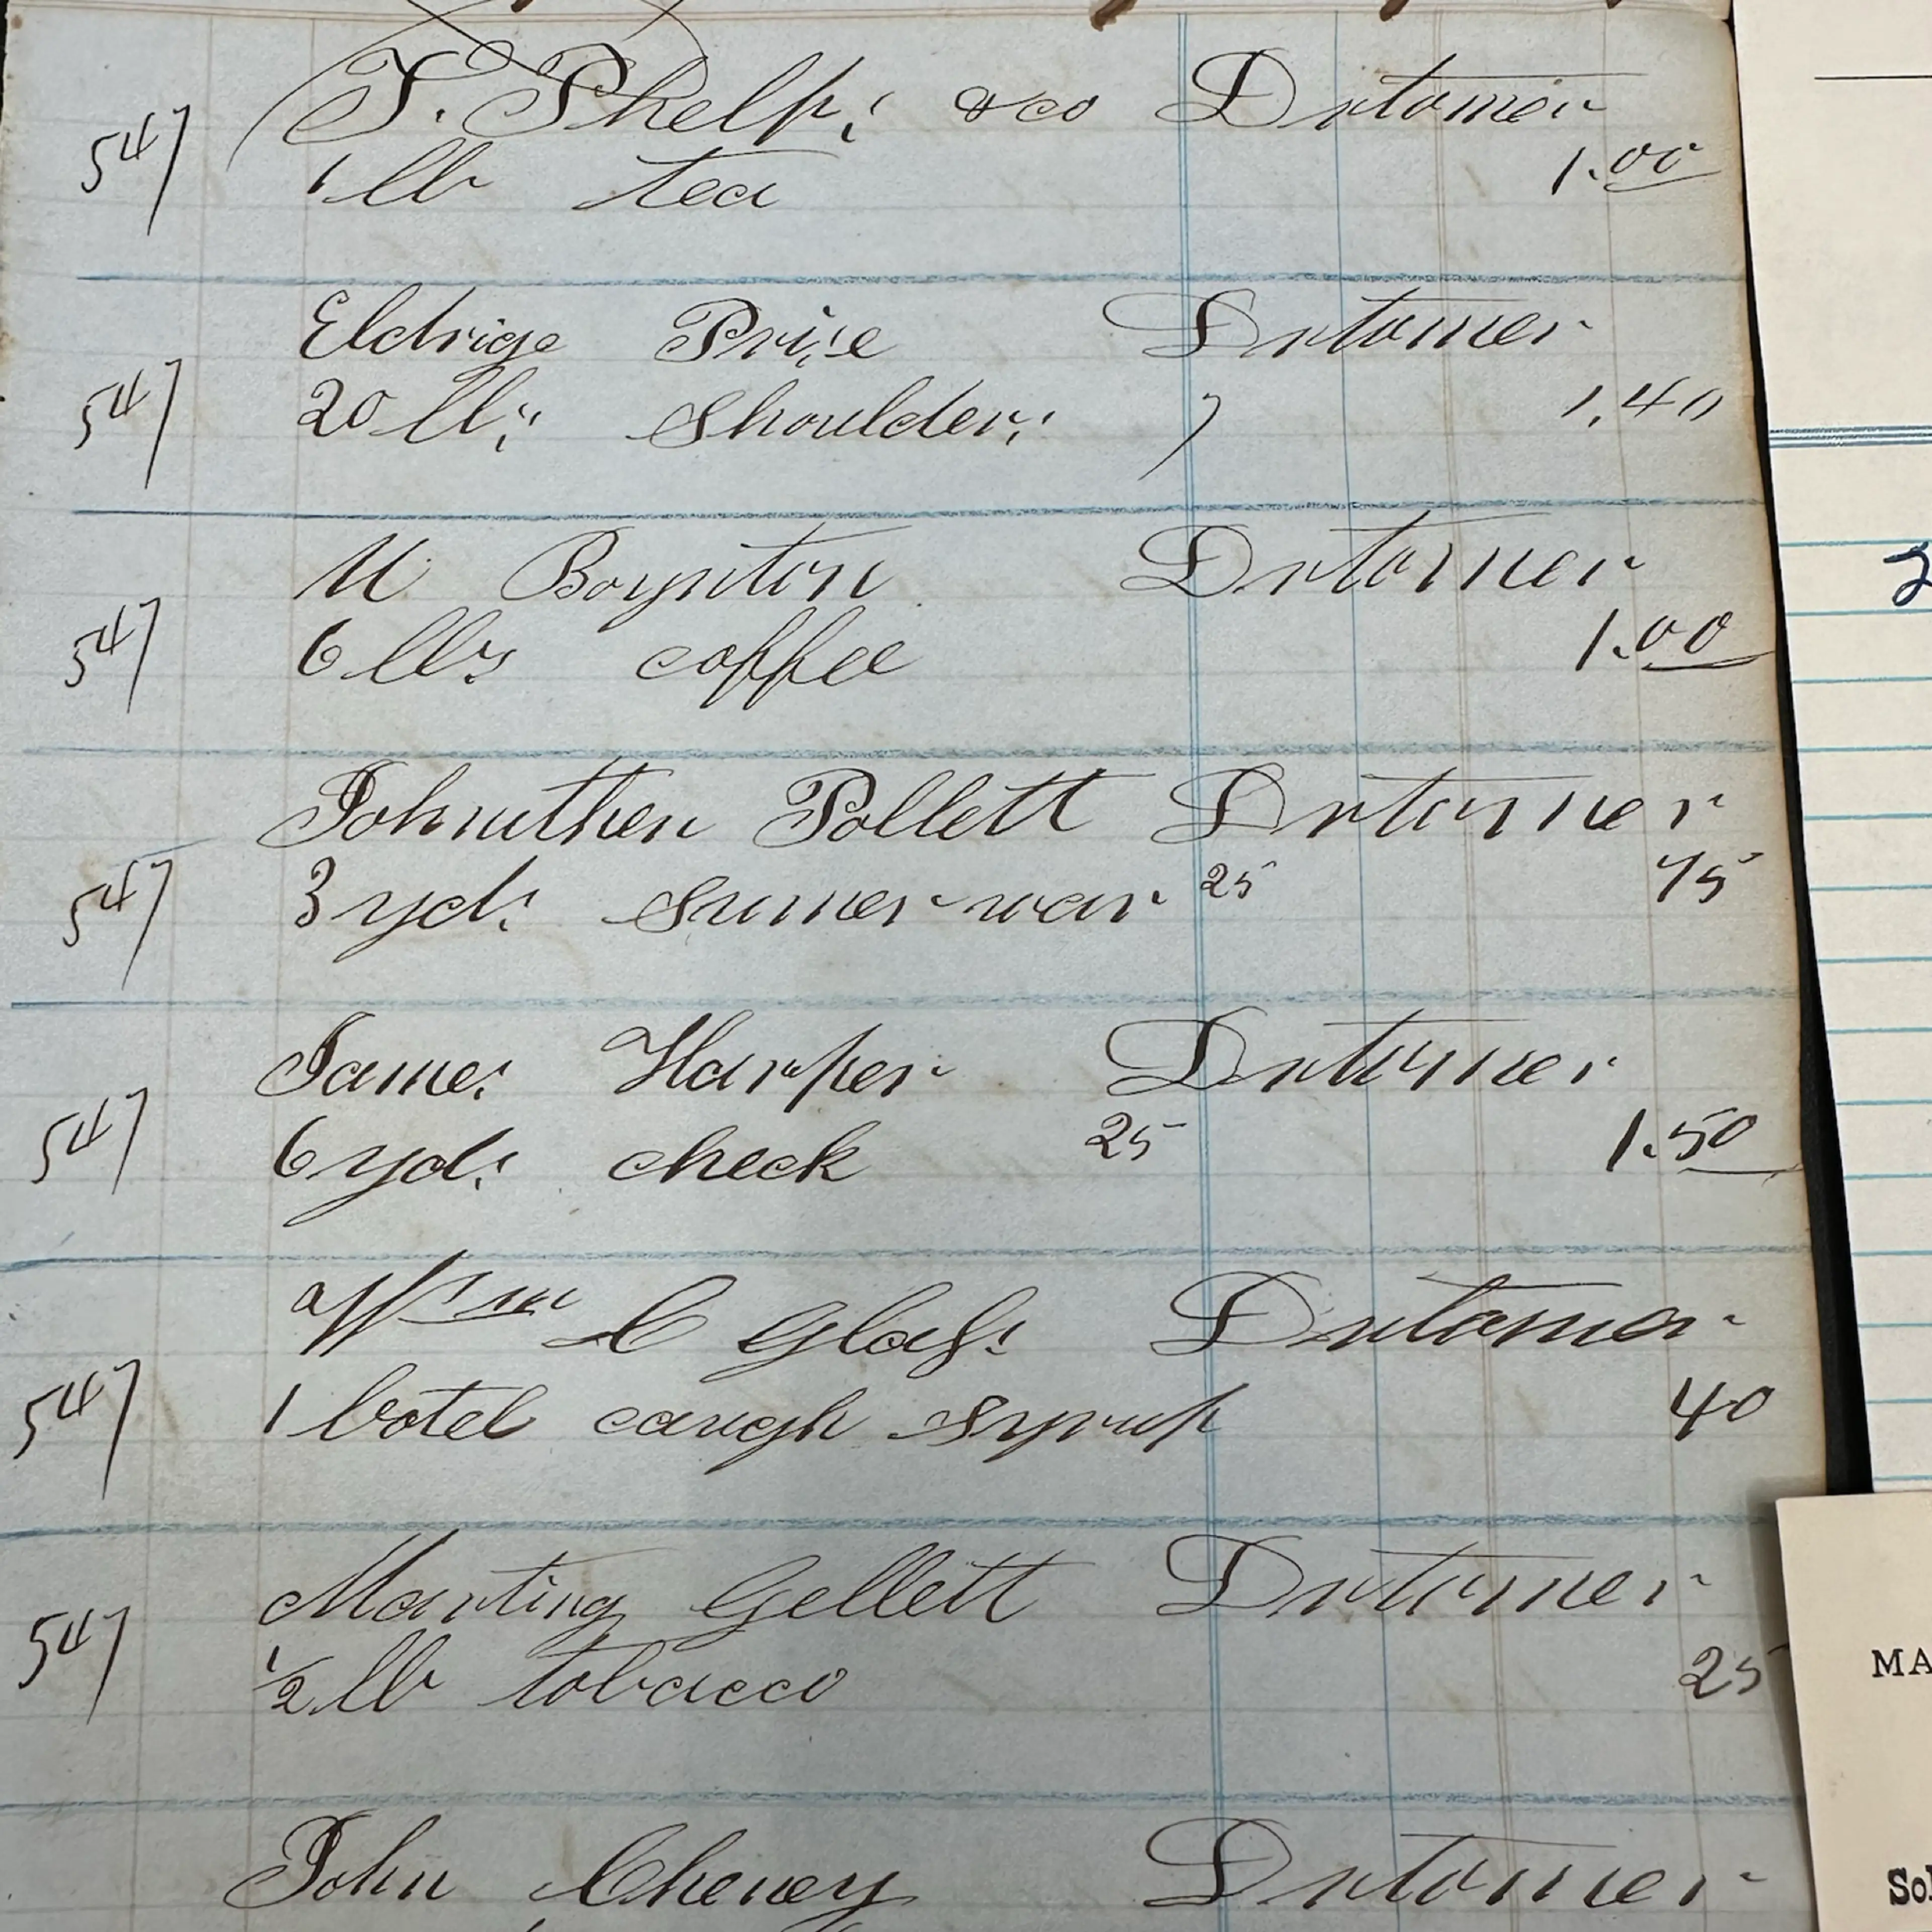 T. Phelps & co Dr to mer
547 1 lb tea 1.00
Eldrige Prise Dr to mer
547 20 lbs Shoulders 7 1.40
M Boynton Dr to mer
547 6 lbs coffee 1.00
Johnuthen Pollett Dr to mer
547 3 yds sumer war 25 75
James Harper Dr to mer
547 6 yds check 25 1.50
Wm C Glass Dr to mer
547 1 botel caugh syrup 40
Marting Gellett Dr to mer
547 1/2 lb tobacco 25
John Cheney Dr to mer
2
MA
Sol